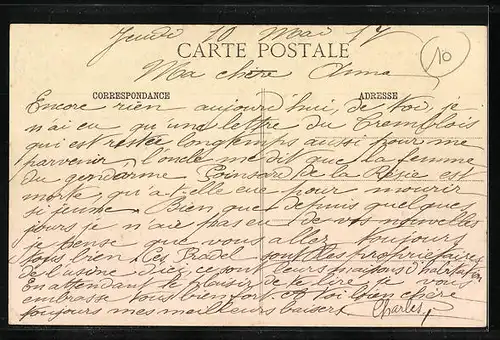 Jeudi 10 Mai 17
CARTE POSTALE
10
Ma chère Anna
CORRESPONDANCE
ADRESSE
Encore rien aujourd'hui, de toi, je
n'ai eu qu'une lettre du Tremblois
qui est restée longtemps aussi pour me
parvenir. l'oncle me dit que la femme
du gendarme Poinsard de la Résie est
morte, qu'a t-elle eue pour mourir
si jeune. Bien que depuis quelque
jours je n'ai pas eu de vos nouvelles
je pense que vous allez toujours
tous bien. Les Pradel sont les propriétaires
de l'usine Diez, ce sont leurs maisons d'habitation
En attendant le plaisir de te lire je vous
embrasse tous bien fort. et toi bien chère
toujours mes meilleurs baisers. Charles